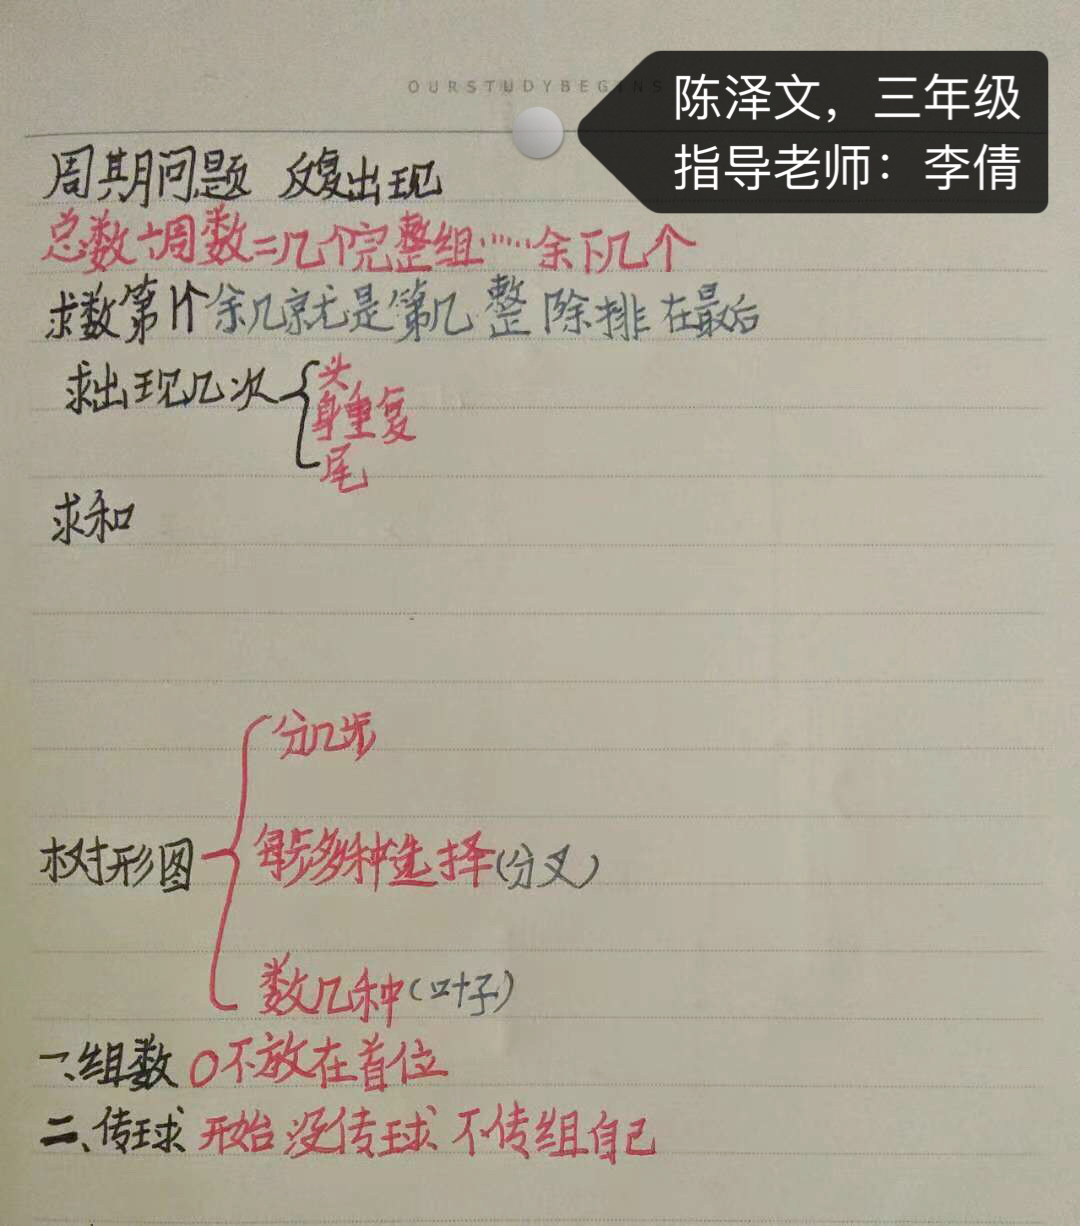 OURSTUDYBEGINS
陈泽文，三年级
指导老师：李倩
周期问题 反复出现
总数÷周数=几个完整组……余下几个
求数第个余几就是第几 整除排在最后
求出现几次
头
身重复
尾
求和
分几步
树形图
每步多种选择(分叉)
数几种(叶子)
一、组数 0不放在首位
二、传球 开始没传球 不传组自己